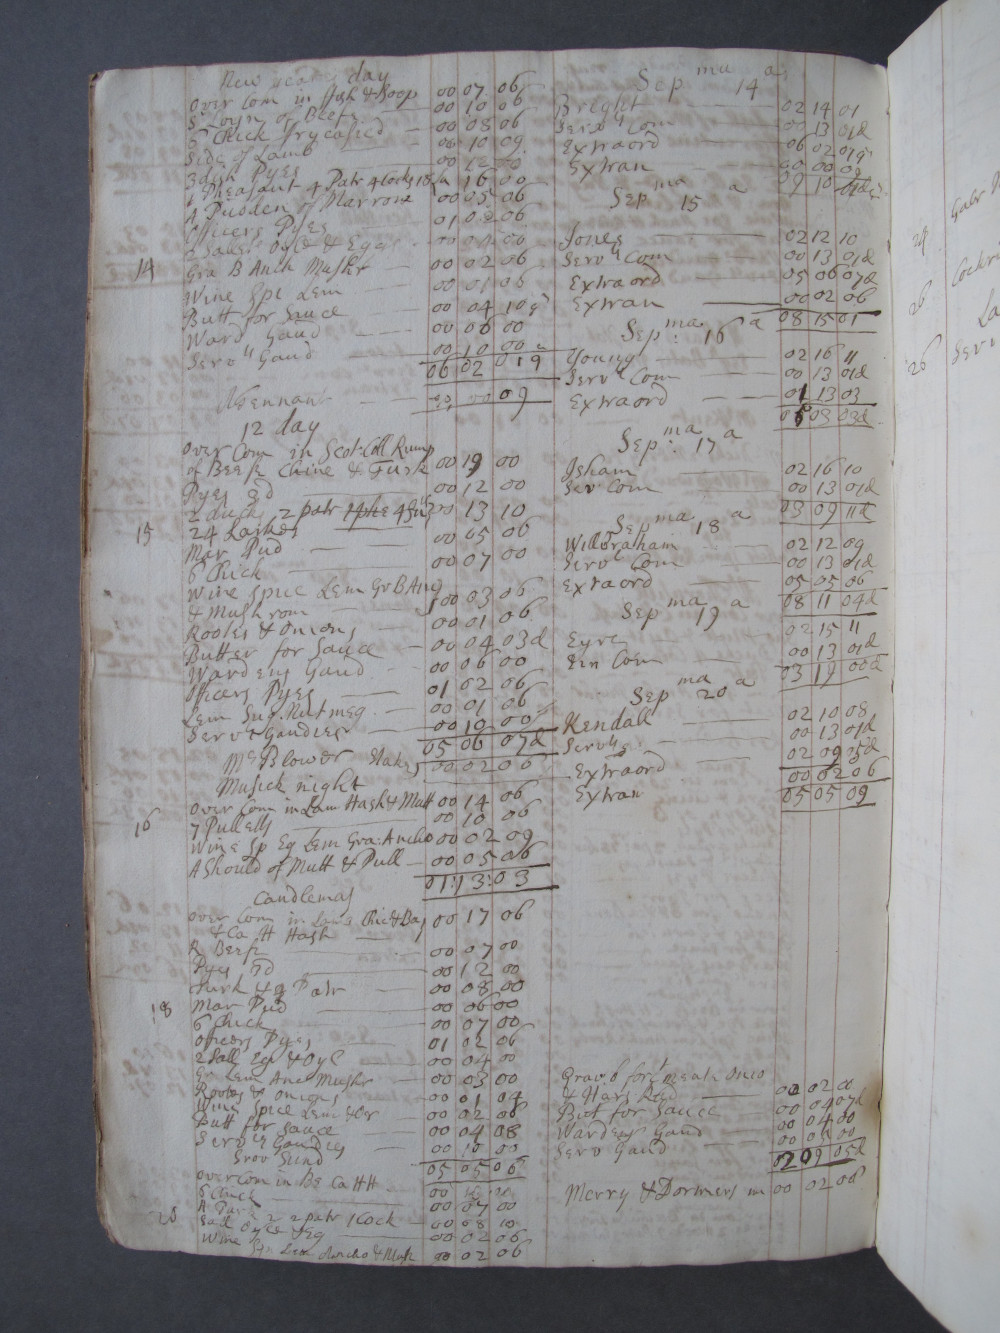 New yeares day
over Com in Fish & Roop 00 07 06
S Loyn of Beefe 00 10 06
6 Chick Frycasied 00 08 06
Side of Lamb 00 10 09
3 dish Pyes 00 12 00
1 Pheasant 4 Patr 4 Cocks 18 La 16 00
A Pudden of Marrow 00 05 06
Officers Pyes 01 02 06
2 Sall Oyle & Eggs 00 04 00
14 Gra B Anch Mushr 00 02 06
Wine Spi Lem 00 01 06
Butt for Sauce 00 04 10
Ward Gaud 00 06 00
Servts Gaud 00 10 00
06 02 01 9
00 00 09
12 day
over Com in Scot Coll Rump
of Beefe Chine & Turk 00 19 00
Pyes 3d 00 12 00
2 duck 2 patr 00 13 10
15 24 Larkes 00 05 06
Mar Pud
6 Chick 00 07 00
Wine Spice Lem Gr B Anc
& Mushrom 00 03 06
Rootes & Onions 00 01 06
Butter for Sauce 00 04 03d
Wardens Gaud 00 06 00
Officers Pyes 01 02 06
Lem Sug Nutmeg 00 01 06
Servts Gaudies 00 10 00
05 06 07d
Mr Blower Stakes 00 02 06
Musick night
16 over Com in Lam Hash & Mutt 00 14 06
7 Pulletts 00 10 06
Wine Sp Eg Lem Gra: Ancho 00 02 09
A Should of Mutt & Pull 00 05 06
01:13:03
Candlemas
over Com in Chic & Ba 00 17 06
& Ca H Hash
R Beefe 00 07 00
Pyes 3d 00 12 00
Turk 4 Patr 00 08 00
18 Mar Pud 00 06 00
6 Chick 00 07 00
Officers Pyes 01 02 06
2 Sall Eg & Oyl 00 04 00
Gr Lem Anc Mushr 00 03 00
Rootes & onions 00 01 04
Wine Spice Lem 00 02 08
Butt for Sauce 00 04 08
Servts Gaudies 00 10 00
05 05 06
Srov Sund
over Com in Be Ca HH
6 Chick 00 07 00
20 2 patr 1 Cock 00 08 10
Oyle & Eg 00 02 06
Wine
Ancho & Mush 00 02 06
Sepmana 14
Bright 02 14 01
Servts Com 00 13 01d
Extraord 06 02 01
Extran 00 00 09
09 10
Sepmana 15
Jones 02 12 10
Servts Com 00 13 01d
Extraord 05 06 07d
Extran 00 02 06
08 15 01
Sep:mana 16
Young 02 16 11
Servts Com 00 13 01d
Extraord 01 13 03
05 03 03d
Sep:mana 17
Isham 02 16 10
Ser Com 00 13 01d
03 09 11d
Sepmana 18
Will Bratham 02 12 09
Servts Com 00 13 01d
Extraord 05 05 06
08 11 04d
Sepmana 19
Eyre 02 15 11
Com 00 13 01d
03 19 00d
Sepmana 20
Kendall 02 10 08
Servts 00 13 01d
Extraord 02 09 05d
Extran 00 02 06
05 05 09
Grav B for meat Onio
& Hars Rad 00 02 00
Butt for Sauce 00 04 07d
Wardens Gaud 00 04 00
Servo Gaud
02 09 05d
Merry & Dormers 00 02 06
24 Gabr
26 Cockr
La
26 Serv